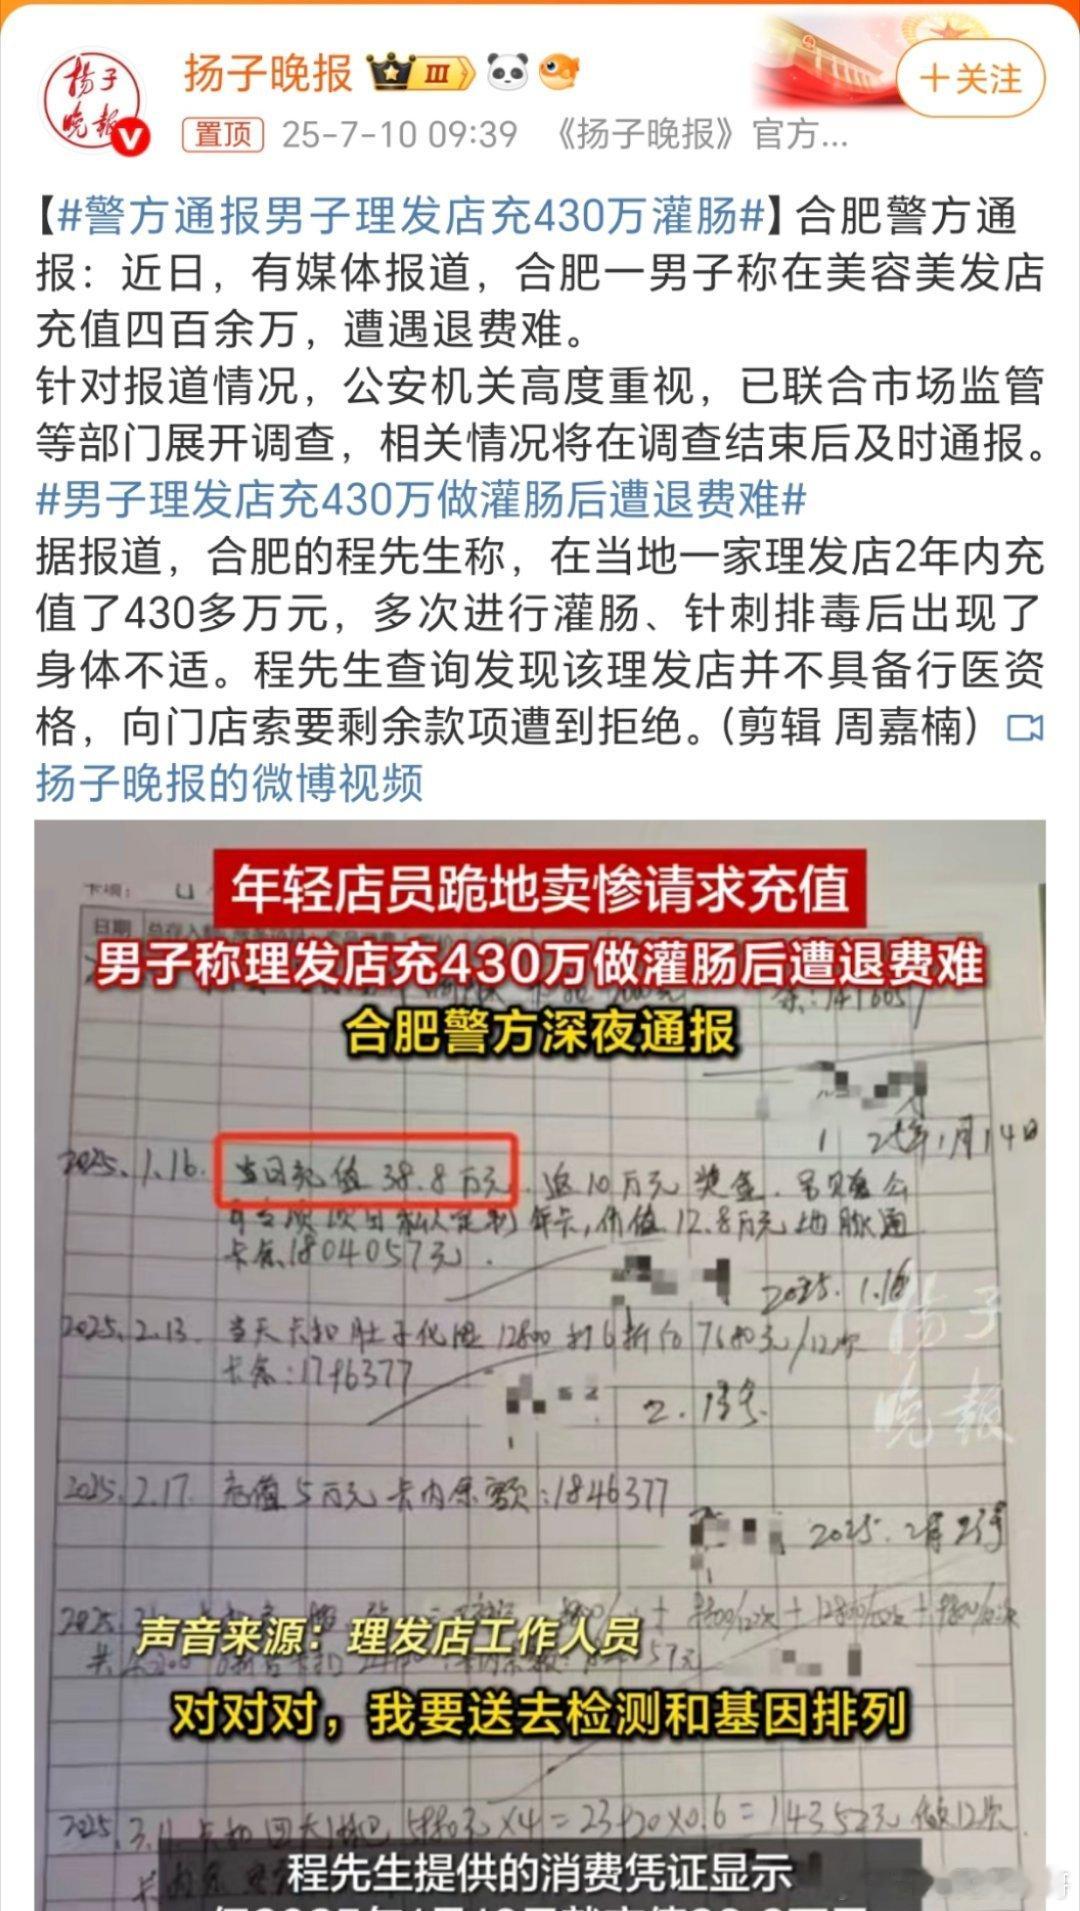 扬子晚报 III
+关注
扬子晚报
V
置顶 25-7-10 09:39 《扬子晚报》官方...
【#警方通报男子理发店充430万灌肠#】合肥警方通
报：近日，有媒体报道，合肥一男子称在美容美发店
充值四百余万，遭遇退费难。
针对报道情况，公安机关高度重视，已联合市场监管
等部门展开调查，相关情况将在调查结束后及时通报。
#男子理发店充430万做灌肠后遭退费难#
据报道，合肥的程先生称，在当地一家理发店2年内充
值了430多万元，多次进行灌肠、针刺排毒后出现了
身体不适。程先生查询发现该理发店并不具备行医资
格，向门店索要剩余款项遭到拒绝。（剪辑 周嘉楠）
扬子晚报的微博视频
年轻店员跪地卖惨请求充值
日期
男子称理发店充430万做灌肠后遭退费难
合肥警方深夜通报
1月14日
2025.1.16. 当日充值38.8万元.返10万元奖金.
年卡,价值12.8万元地脉通
卡余1804057元.
2025.1.16
扬子
晚报
2025.2.13. 当天卡扣肚子化淤12800打6折后7680元/12次
卡余:1796377
2.13号.
2025.2.17. 充值5万元卡内余额:1846377
声音来源：理发店工作人员
对对对，我要送去检测和基因排列
2025.3.11.
程先生提供的消费凭证显示